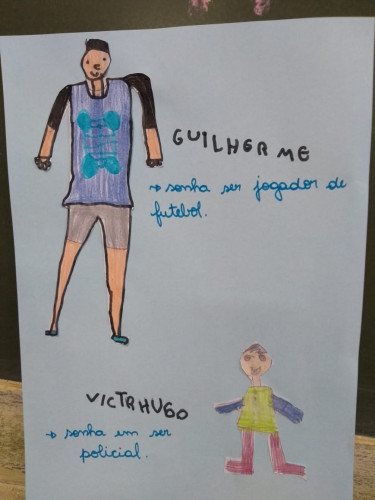 GUILHERME
→ sonha ser jogador de
futebol.
VICTRHUGO
→ sonha em ser
policial.